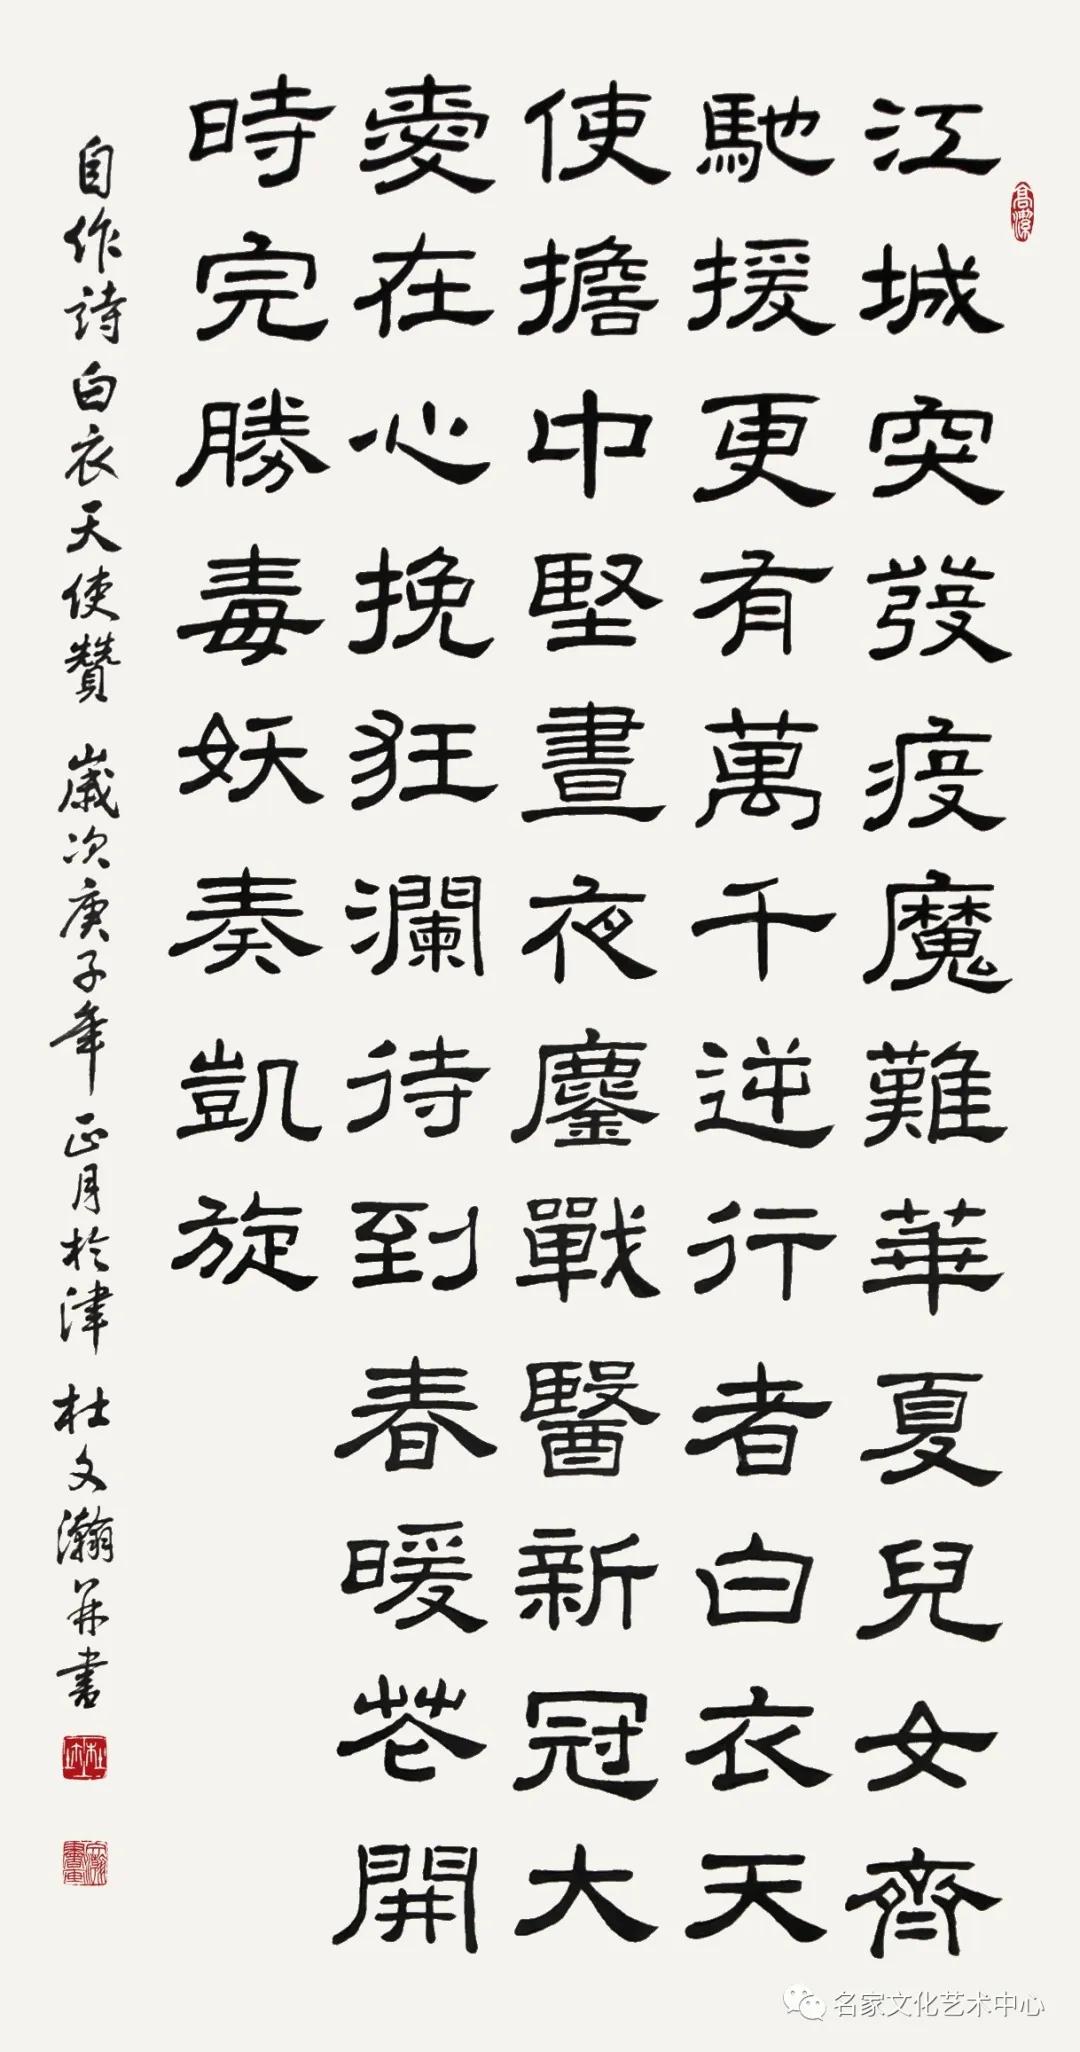 江城突發疫魔難華夏兒女齊
馳援更有萬千逆行者白衣天
使擔中堅晝夜鏖戰醫新冠大
愛在心挽狂瀾待到春暖花開
時完勝毒妖奏凱旋
自作詩白衣天使贊 歲次庚子年正月於津 杜文瀚并書
名家文化艺术中心